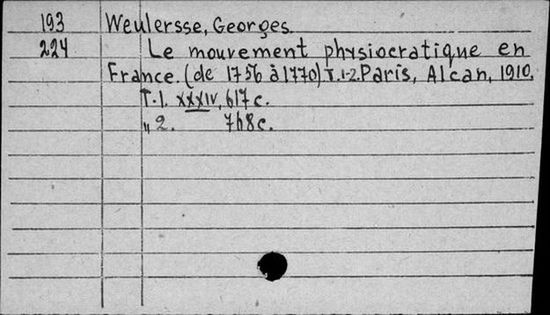 193 Weulersse, Georges.
224 Le mouvement physiocratique en
France. (de 1756 à 1770) T.1-2. Paris, Alcan, 1910.
T.1. XXXIV, 617 c.
„ 2. 768 c.